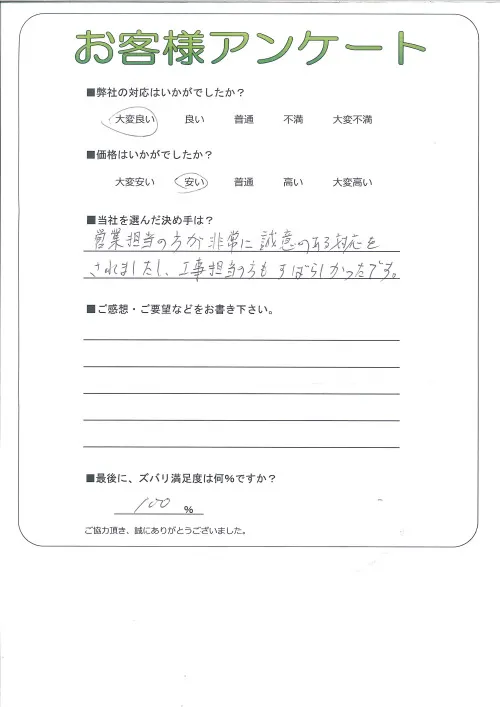 お客様アンケート
■弊社の対応はいかがでしたか？
大変良い 良い 普通 不満 大変不満
■価格はいかがでしたか？
大変安い 安い 普通 高い 大変高い
■当社を選んだ決め手は？
営業担当の方が非常に誠意のある対応を
されましたし、工事担当の方もすばらしかったです。
■ご感想・ご要望などをお書き下さい。
■最後に、ズバリ満足度は何％ですか？
100 %
ご協力頂き、誠にありがとうございました。